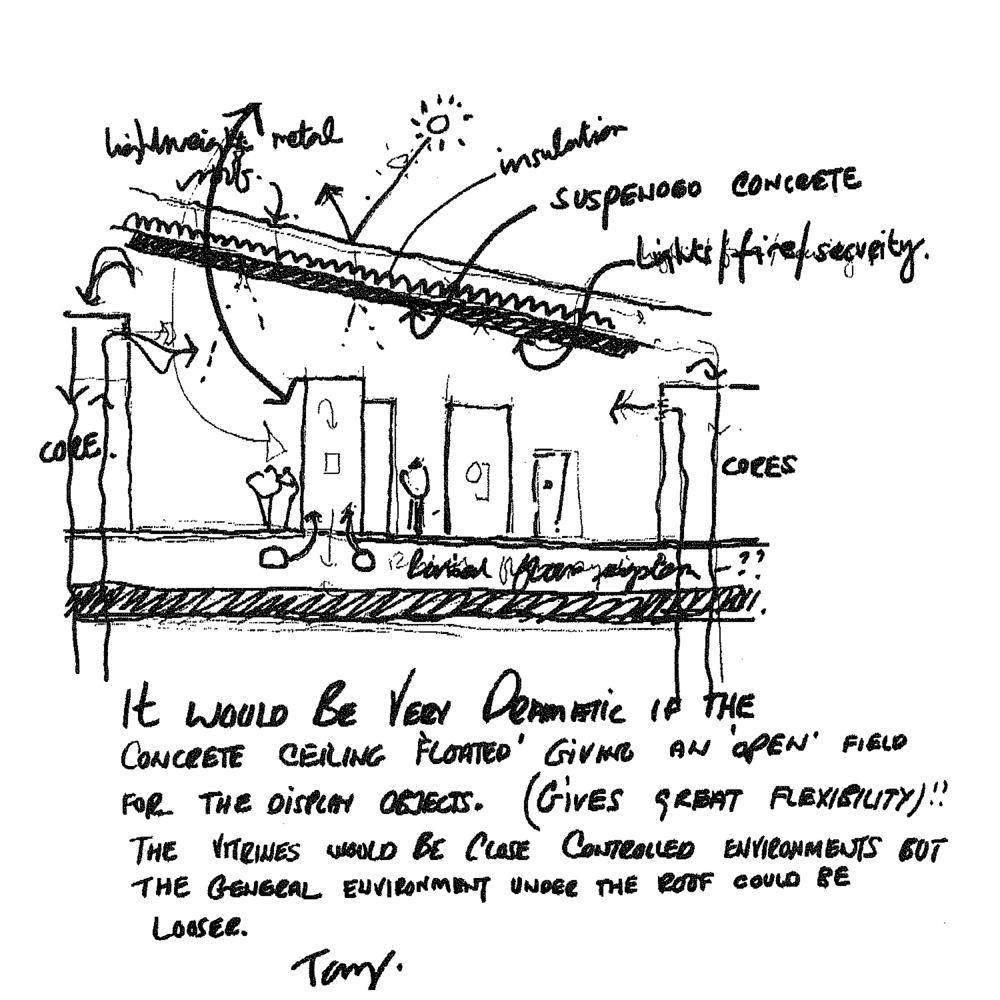 lightweight metal
roofs.
insulation
SUSPENDED CONCRETE
Lights/fire/security.
CORE.
CORES
- ??
IT WOULD BE VERY DRAMATIC IF THE
CONCRETE CEILING 'FLOATED' GIVING AN 'OPEN' FIELD
FOR THE DISPLAY OBJECTS. (GIVES GREAT FLEXIBILITY)!!
THE VITRINES WOULD BE CLOSE CONTROLLED ENVIRONMENTS BUT
THE GENERAL ENVIRONMENT UNDER THE ROOF COULD BE
LOOSER.
Tony.